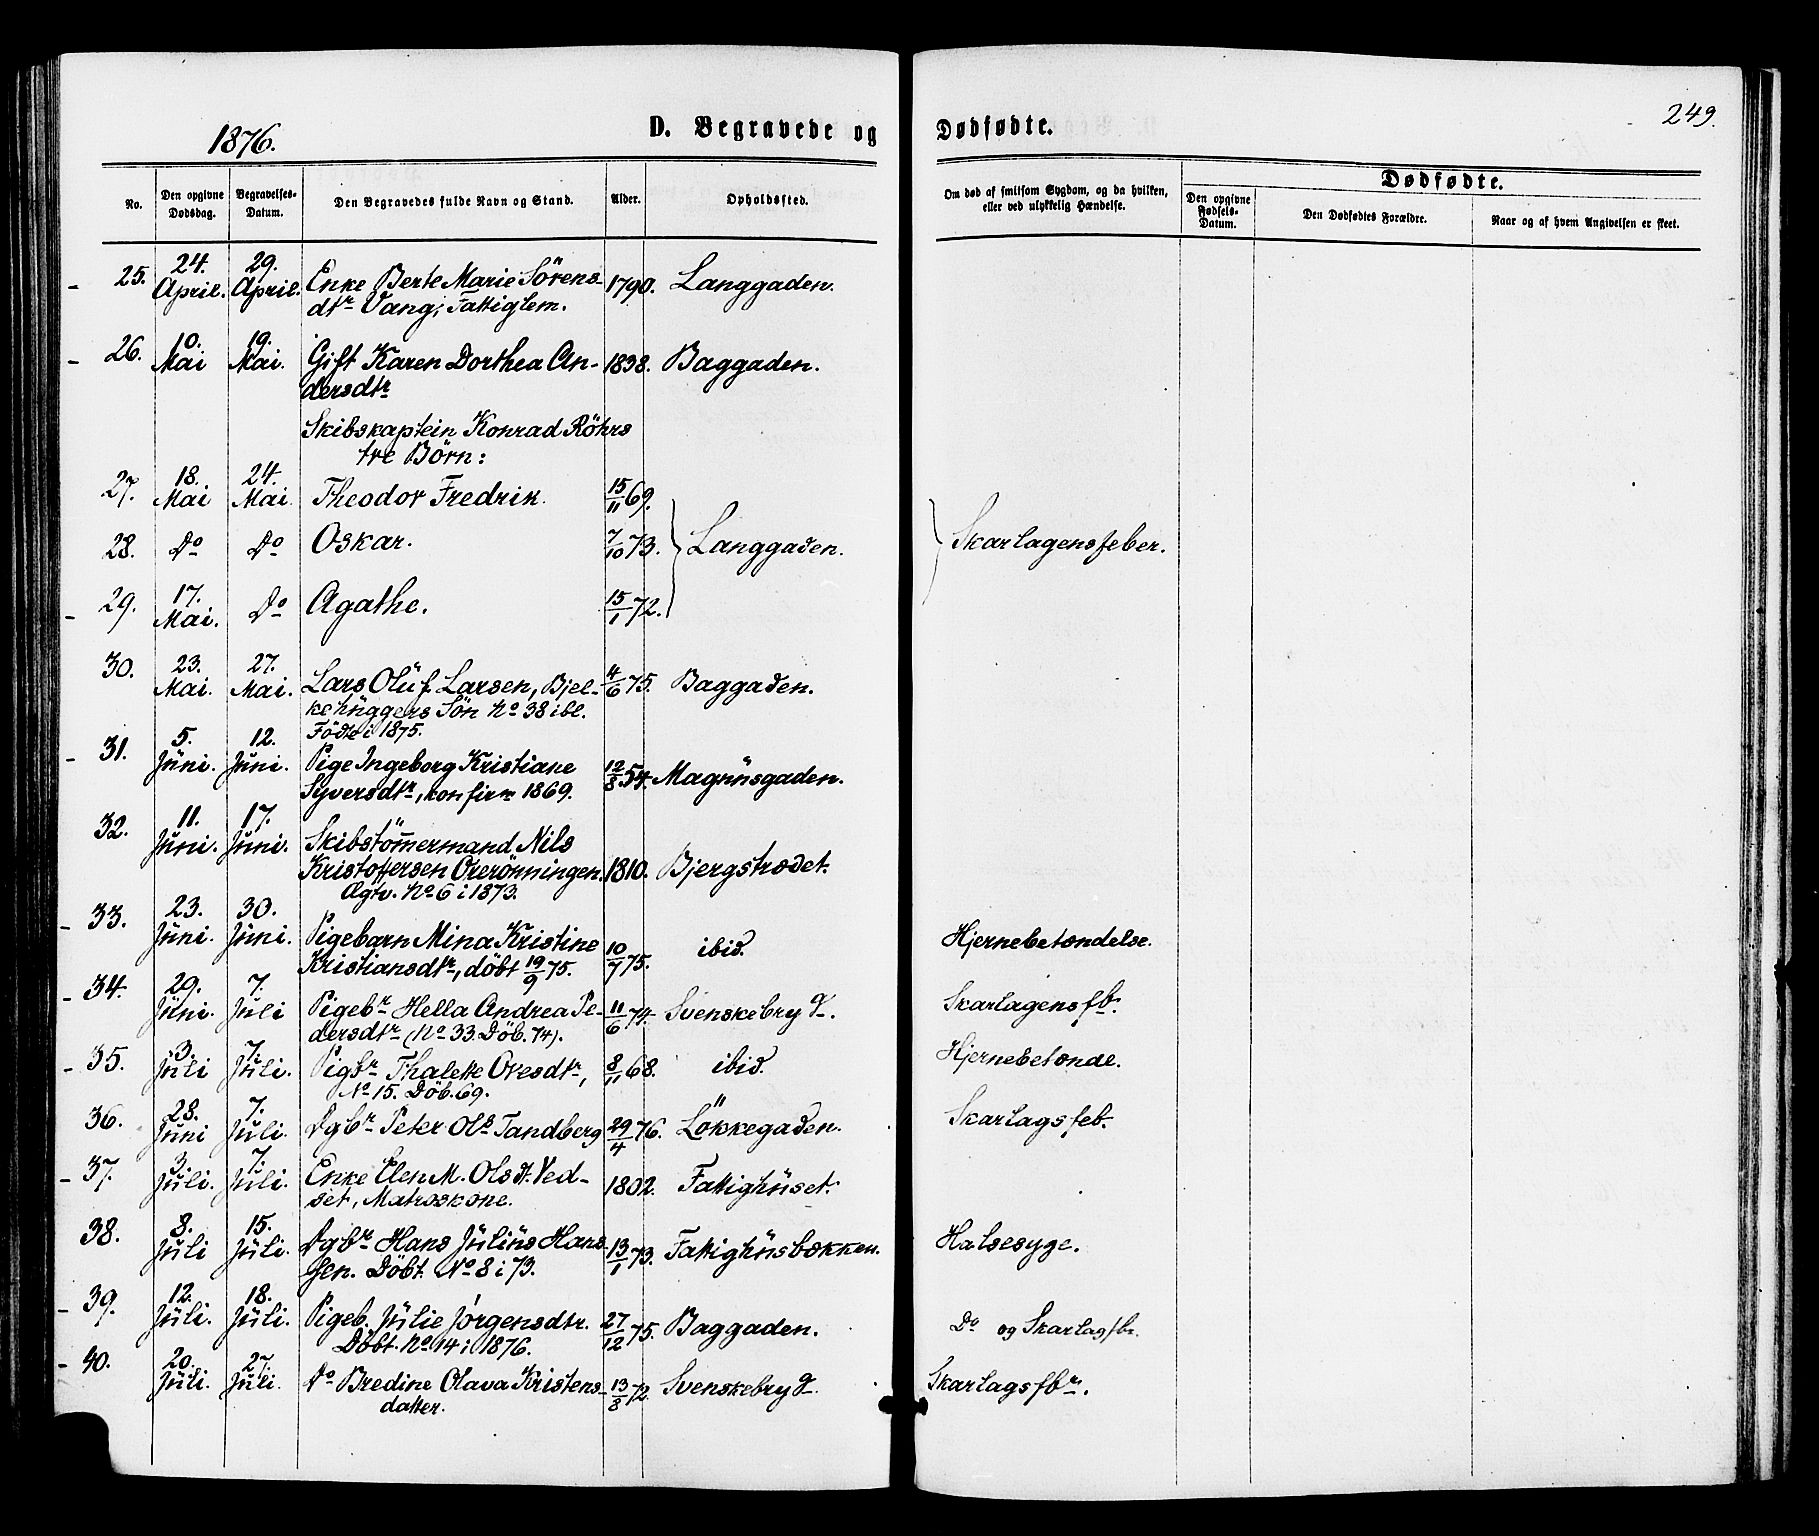 249.
1876.
D. Begravede og Dødfødte.
No.
Den opgivne Dødsdag.
Begravelses-Datum.
Den Begravedes fulde Navn og Stand.
Alder.
Opholdssted.
Om død af smitsom Sygdom, og da hvilken, eller ved ulykkelig Hændelse.
Dødfødte.
Den opgivne Fødsels-Datum.
Den Dødfødtes Forældre.
Naar og af hvem Angivelsen er skeet.
25. 24. April. 29. April. Enke Berte Marie Sörens- 1790. Langgaden.
dtr Vang, Fattiglem.
26. 10. Mai 19. Mai. Gift Karen Dorthea An- 1838. Baggaden.
dersdtr
Skibskaptein Konrad Röhrs
tre Börn:
27. 18. Mai 24. Mai. Theodor Fredrik. 15/11 69.
28. Do Do Oskar. 7/10 73. Langgaden. Skarlagensfeber.
29. 17. Mai. Do Agathe. 15/1 72.
30. 23. Mai. 27. Mai. Lars Oluf Larsen, Bjel- 4/6 75. Baggaden.
kehuggers Sön No 38 ibl.
Födte i 1875.
31. 5. Juni. 12. Juni. Pige Ingeborg Kristiane 12/8 54. Magnusgaden.
Syversdtr, konfirm 1869.
32. 11. Juni. 17. Juni. Skibstömmermand Nils
Kristoffersen Overönningen. 1810. Bjergstrædet.
Ægtv. No 6 i 1873.
33. 23. Juni. 30. Juni. Pigebarn Mina Kristine 10/7 75. ibid. Hjernebetændelse.
Kristiansdtr, döbt 19/9 75.
34. 29. Juni. 7. Juli Pigebr Hella Andrea Pe- 11/6 74. Svenskebryg. Skarlagensfb.
dersdtr (No 33. Döb. 74).
35. 3. Juli 7. Juli. Pigbr Thalete Ovesdtr, 8/11 68. ibid. Hjernebetænde.
No 15. Döb. 69.
36. 28. Juni 7. Juli. Dgbr Peter Ols Tandberg 29/4 76. Lökkegaden. Skarlagsfeb.
37. 3. Juli. 7. Juli. Enke Elen M. Olsdt. Ved- 1802. Fattighuset.
set, Matroskone.
38. 8. Juli 15. Juli. Dgbr Hans Julius Hans- 13/1 73. Fattighusbakken. Halsesyge.
sen. Döbt. No 8 i 73.
39. 12. Juli. 18. Juli. Pigeb. Julie Jörgensdtr. 27/12 75. Baggaden. Do og Skarlagsfbr.
Döbt. No 14 i 1876.
40. 20. Juli. 27. Juli. Do Bredine Olava Kristens- 13/8 72. Svenskebryg Skarlagsfbr.
datter.